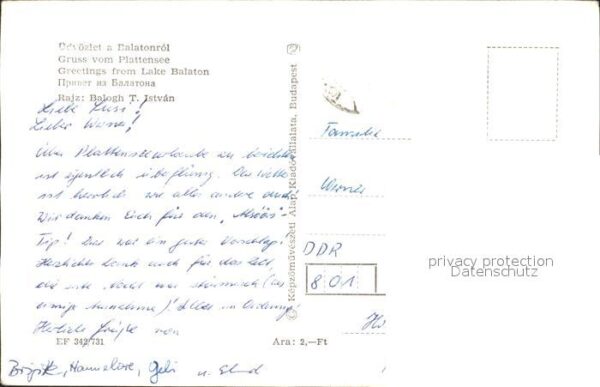 Üdvözlet a Balatonról
Gruss vom Plattensee
Greetings from Lake Balaton
Привет из Балатона
Rajz: Balogh T. István
Liebe Susi!
Lieber Werner!
Über Plattenseeurlaube zu berichten
ist eigentlich überflüssig. Das Wetter
ist herrlich wie alles andere auch!
Wir danken Euch für den
Tip! Das war ein guter Vorschlag.
Herzlichen Dank auch für das Zelt,
die erste Nacht war stürmisch (
einzige Ausnahme)! Alles in Ordnung!
Herzliche Grüße von
Brigitte, Hannelore, Gabi u.
EF 342/731
Ara: 2,—Ft
© Képzőművészeti Alap Kiadóvállalata, Budapest
Familie
Werner
DDR
801
privacy protection
Datenschutz